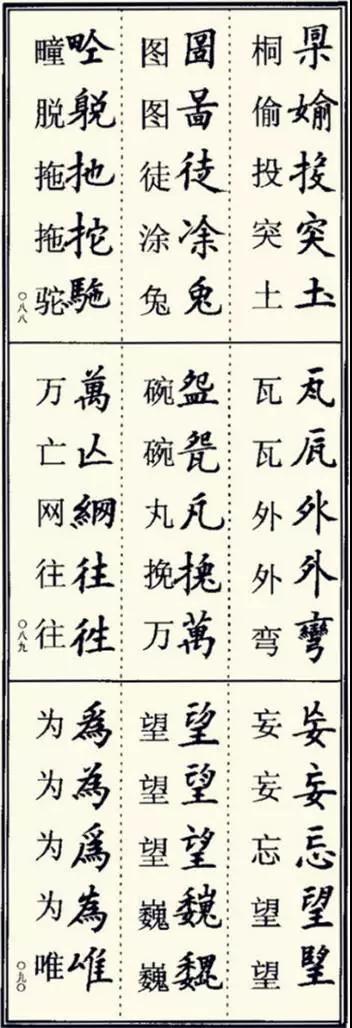 媮投突土
桐偷投突土
圖啚徒涂兔
图图徒涂兔
扡拕駞
疃脱拖拖驼
〇八八
瓦瓦外外彎
瓦瓦外外弯
盌丸挽萬
碗碗丸挽万
萬亾網往徃
万亡网往往
〇八九
妄妄忘望
妄妄忘望望
望望望巍巍
望望望巍巍
爲為爲為唯
为为为为唯
〇九〇